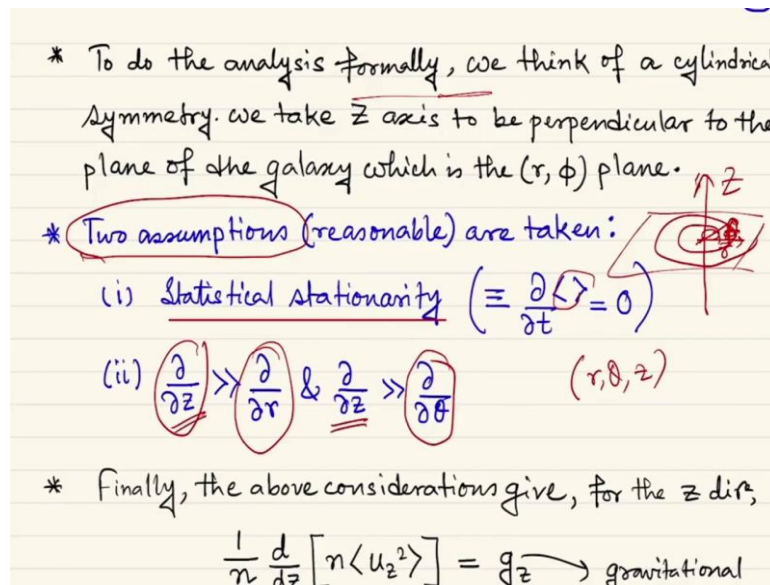 * To do the analysis formally, we think of a cylindrical
symmetry. we take Z axis to be perpendicular to the
plane of the galaxy which is the (r, φ) plane.
Z
* Two assumptions (reasonable) are taken:
(i) Statistical stationarity (≡ ∂/∂t < > = 0)
(ii) ∂/∂z >> ∂/∂r & ∂/∂z >> ∂/∂θ
(r, θ, z)
* Finally, the above considerations give, for the z dirⁿ,
1/n d/dz [n<u_z²>] = g_z → gravitational